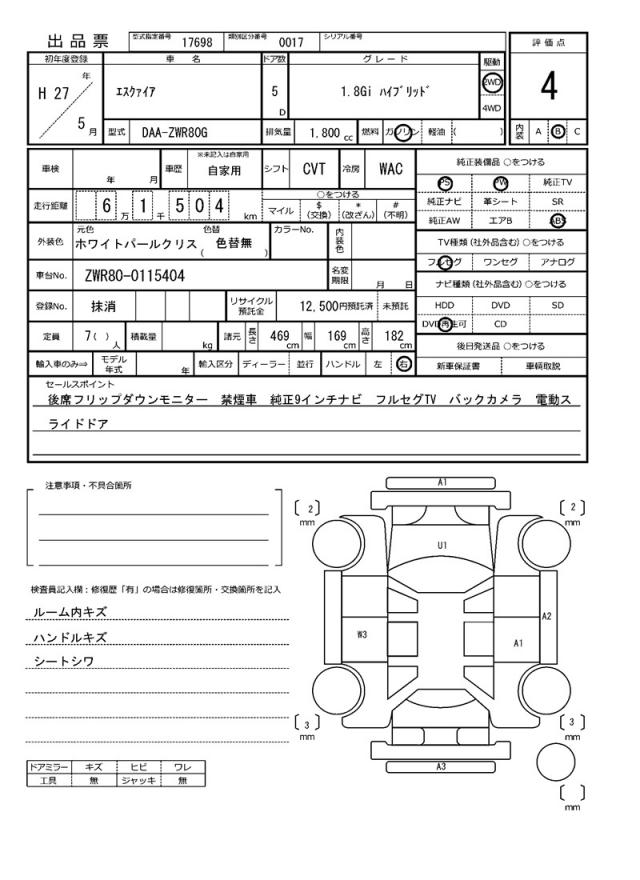 出品票 型式指定番号 17698 類別区分番号 0017 シリアル番号
評価点
初年度登録 車名 ドア数 グレード 駆動
H 27 年 5 月
エスクァイア 5 D 1.8Gi ハイブリッド 2WD 4WD
4
型式 DAA-ZWR80G 排気量 1.800 cc 燃料 ガソリン 軽油 ( ) 内装 A B C
車検 年 月 車歴 ※未記入は自家用 自家用 シフト CVT 冷房 WAC
純正装備品 ○をつける
PS PW 純正TV
純正ナビ 革シート SR
純正AW エアB ABS
走行距離 6 万 1 千 5 0 4 km
○をつける
マイル $(交換) *(改ざん) #(不明)
外装色 元色 ホワイトパールクリス 色替 ( 色替無 ) カラーNo. 内装色
TV種類 (社外品含む) ○をつける
フルセグ ワンセグ アナログ
車台No. ZWR80-0115404 名変期限 月 日
ナビ種類 (社外品含む) ○をつける
HDD DVD SD
DVD再生可 CD
登録No. 抹消 リサイクル預託金 12,500円預託済 未預託
定員 7( )人 積載量 kg 諸元 長さ 469 cm 幅 169 cm 高さ 182 cm
後日発送品 ○をつける
新車保証書 車輌取説
輸入車のみ⇒ モデル年式 年 輸入区分 ディーラー 並行 ハンドル 左 右
セールスポイント
後席フリップダウンモニター 禁煙車 純正9インチナビ フルセグTV バックカメラ 電動ス
ライドドア
注意事項・不具合箇所
検査員記入欄：修復歴「有」の場合は修復箇所・交換箇所を記入
ルーム内キズ
ハンドルキズ
シートシワ
ドアミラー キズ ヒビ ワレ
工具 無 ジャッキ 無
A1
[ 2 ] mm
[ 2 ] mm
U1
A2
W3
A1
[ 3 ] mm
[ 3 ] mm
A3
[ ] mm